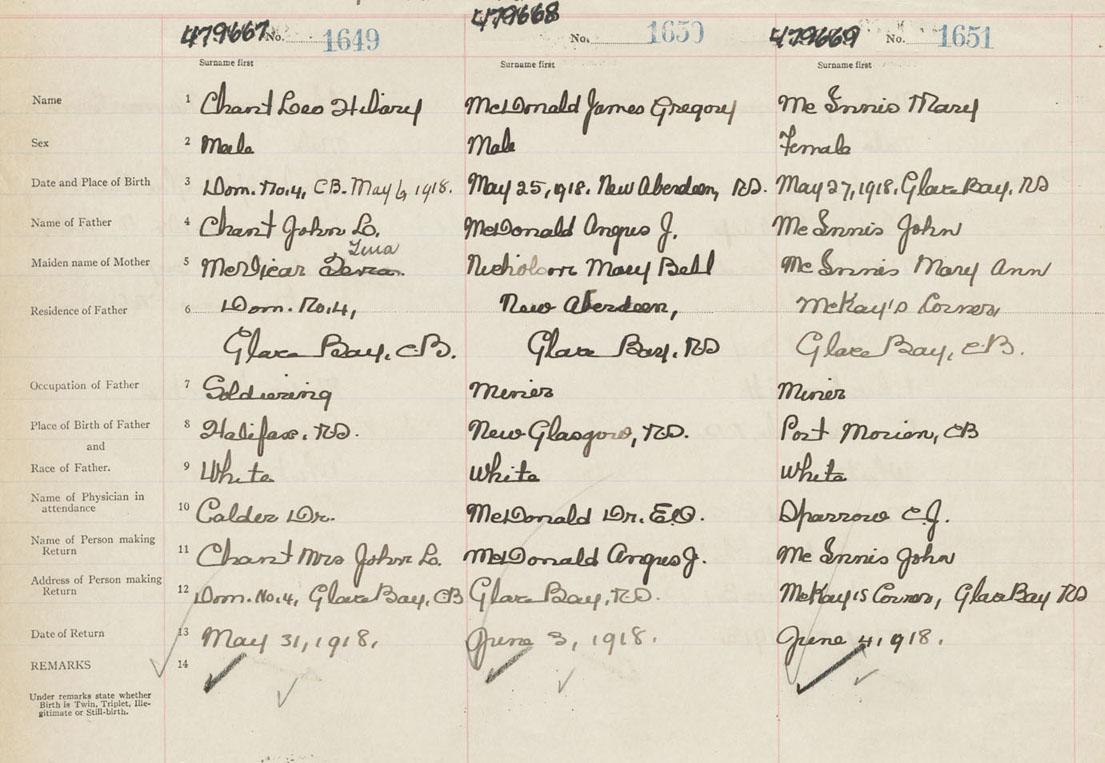 479667 No. 1649
479668 No. 1650
479669 No. 1651
Surname first
Surname first
Surname first
Name 1 Chant Leo Hilary
McDonald James Gregory
Mc Innis Mary
Sex 2 Male
Male
Female
Date and Place of Birth 3 Dom. No.4, C.B. May 6, 1918.
May 25, 1918. New Aberdeen, NS.
May 27, 1918. Glace Bay, NS
Name of Father 4 Chant John L.
McDonald Angus J.
Mc Innis John
Tena
Maiden name of Mother 5
Nicholson Mary Bell
Mc Innis Mary Ann
Residence of Father 6 Dom. No.4,
New Aberdeen,
McKay's Corner
Glace Bay, CB.
Glace Bay, NS
Glace Bay, CB.
Occupation of Father 7 Soldiering
Miner
Miner
Place of Birth of Father 8 Halifax, NS.
New Glasgow, NS.
Port Morien, CB
and
Race of Father. 9 White
White
White
Name of Physician in
attendance 10 Calder Dr.
McDonald Dr. E.O.
Sparrow C.J.
Name of Person making
Return 11 Chant Mrs John L.
McDonald Angus J.
Mc Innis John
Address of Person making
Return 12 Dom. No.4, Glace Bay, CB
Glace Bay, NS.
McKay's Corner, Glace Bay NS
Date of Return 13 May 31, 1918.
June 3, 1918.
June 4, 1918.
REMARKS 14
Under remarks state whether
Birth is Twin, Triplet, Ille-
gitimate or Still-birth.